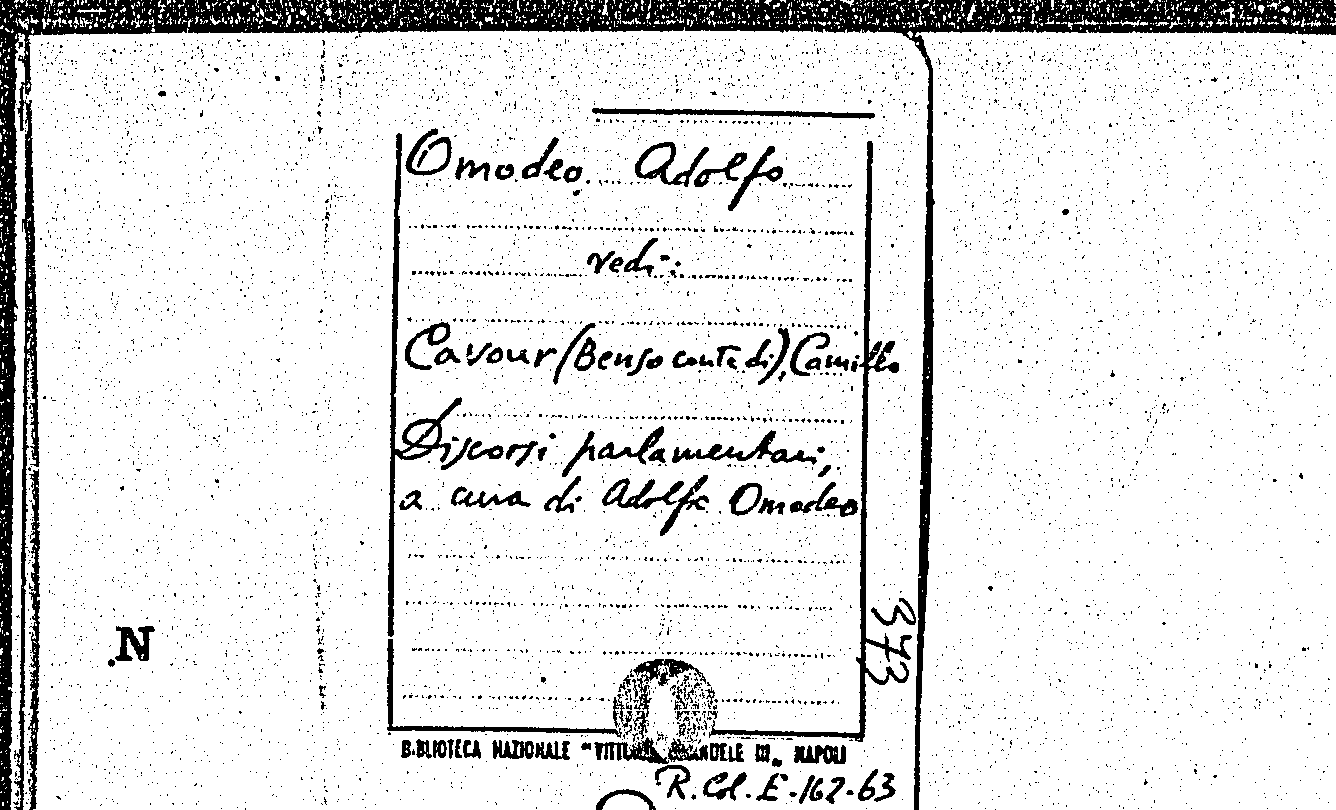 Omodeo Adolfo
vedi:
Cavour (Benso conte di), Camillo
Discorsi parlamentari,
a cura di Adolfo Omodeo
373
N
BIBLIOTECA NAZIONALE "VITTORIO EMANUELE III„ NAPOLI
R.Col.E-162-63